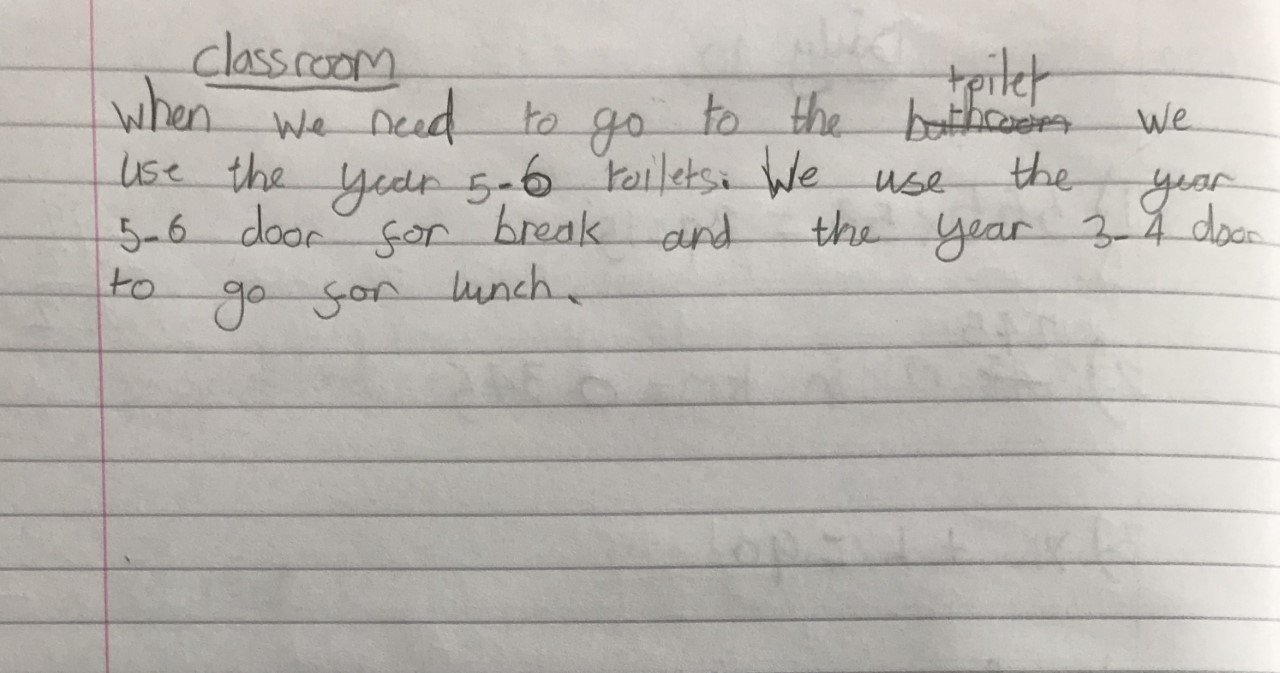 classroom
when we need to go to the toilet we
use the year 5-6 toilets. We use the year
5-6 door for break and the year 3-4 door
to go for lunch.